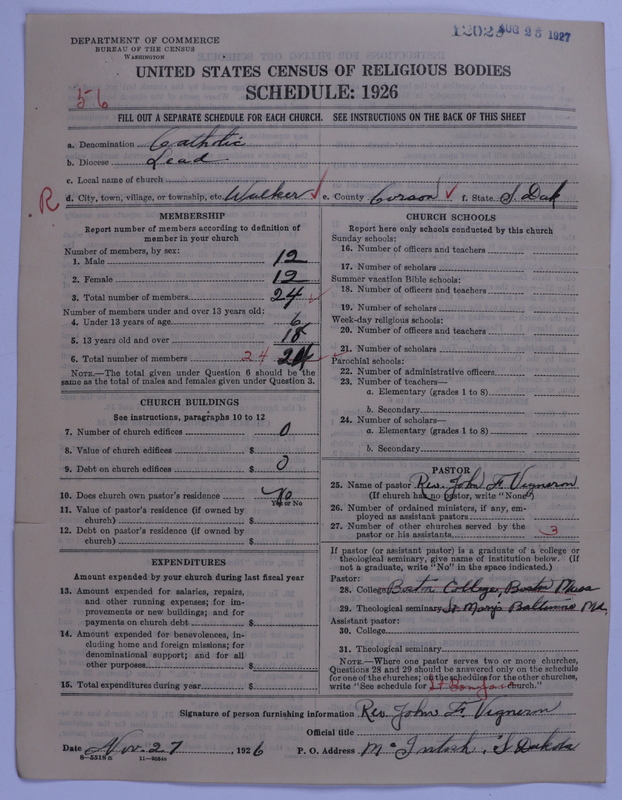 DEPARTMENT OF COMMERCE
BUREAU OF THE CENSUS
WASHINGTON
12029 AUG 25 1927
UNITED STATES CENSUS OF RELIGIOUS BODIES
SCHEDULE: 1926
56
FILL OUT A SEPARATE SCHEDULE FOR EACH CHURCH. SEE INSTRUCTIONS ON THE BACK OF THIS SHEET
a. Denomination Catholic
b. Diocese Lead
c. Local name of church
R d. City, town, village, or township, etc. Walker e. County Corson f. State S. Dak
MEMBERSHIP
Report number of members according to definition of
member in your church
Number of members, by sex:
1. Male 12
2. Female 12
3. Total number of members 24
Number of members under and over 13 years old:
4. Under 13 years of age 6
5. 13 years old and over 18
6. Total number of members 24 24
NOTE.—The total given under Question 6 should be the
same as the total of males and females given under Question 3.
CHURCH BUILDINGS
See instructions, paragraphs 10 to 12
7. Number of church edifices 0
8. Value of church edifices $
9. Debt on church edifices $ 0
10. Does church own pastor's residence No
Yes or No
11. Value of pastor's residence (if owned by
church) $
12. Debt on pastor's residence (if owned by
church) $
EXPENDITURES
Amount expended by your church during last fiscal year
13. Amount expended for salaries, repairs,
and other running expenses; for im-
provements or new buildings; and for
payments on church debt $
14. Amount expended for benevolences, in-
cluding home and foreign missions; for
denominational support; and for all
other purposes $
15. Total expenditures during year $
CHURCH SCHOOLS
Report here only schools conducted by this church
Sunday schools:
16. Number of officers and teachers
17. Number of scholars
Summer vacation Bible schools:
18. Number of officers and teachers
19. Number of scholars
Week-day religious schools:
20. Number of officers and teachers
21. Number of scholars
Parochial schools:
22. Number of administrative officers
23. Number of teachers—
a. Elementary (grades 1 to 8)
b. Secondary
24. Number of scholars—
a. Elementary (grades 1 to 8)
b. Secondary
PASTOR
25. Name of pastor Rev. John F. Vigneron
(If church has no pastor, write "None")
26. Number of ordained ministers, if any, em-
ployed as assistant pastors
27. Number of other churches served by the
pastor or his assistants 3
If pastor (or assistant pastor) is a graduate of a college or
theological seminary, give name of institution below. (If
not a graduate, write "No" in the space indicated.)
Pastor:
28. College Boston College, Boston Mass
29. Theological seminary St. Mary's Baltimore Md.
Assistant pastor:
30. College
31. Theological seminary
NOTE.—Where one pastor serves two or more churches,
Questions 28 and 29 should be answered only on the schedule
for one of the churches; on the schedules for the other churches,
write "See schedule for St Bonifac church."
Signature of person furnishing information Rev. John F. Vigneron
Official title
Date Nov. 27, 1926 P. O. Address McIntosh, S. Dakota
8—5518a 11—9554s